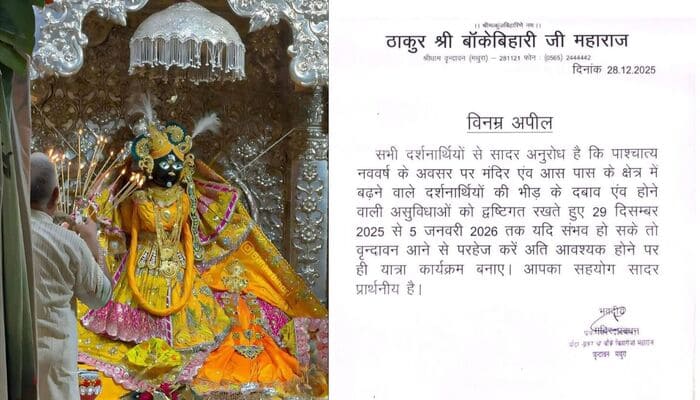 ।। श्रीमत्कुंजबिहारिणे नमः ।।
ठाकुर श्री बाँकेबिहारी जी महाराज
श्रीधाम वृन्दावन (मथुरा) – 281121 फोन : (0565) 2444442
दिनांक 28.12.2025
विनम्र अपील
सभी दर्शनार्थियों से सादर अनुरोध है कि पाश्चात्य
नववर्ष के अवसर पर मंदिर एंव आस पास के क्षेत्र में
बढ़ने वाले दर्शनार्थियों की भीड़ के दबाव एंव होने
वाली असुविधाओं को द्वष्टिगत रखते हुए 29 दिसम्बर
2025 से 5 जनवरी 2026 तक यदि संभव हो सके तो
वृन्दावन आने से परहेज करें अति आवश्यक होने पर
ही यात्रा कार्यक्रम बनाए। आपका सहयोग सादर
प्रार्थनीय है।
भवदीय
वृन्दावन मथुरा